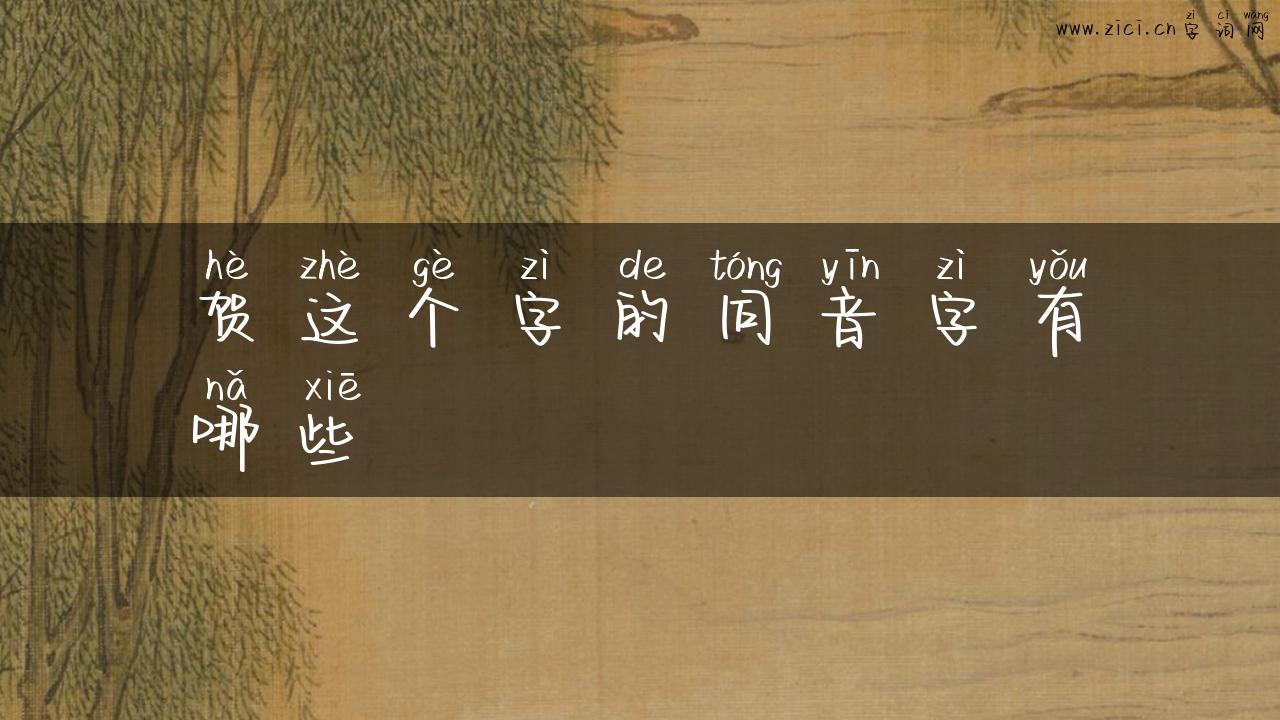 zì cí wǎng
www.zici.cn 字词网
hè zhè gè zì de tóng yīn zì yǒu
贺这个字的同音字有
nǎ xiē
哪些